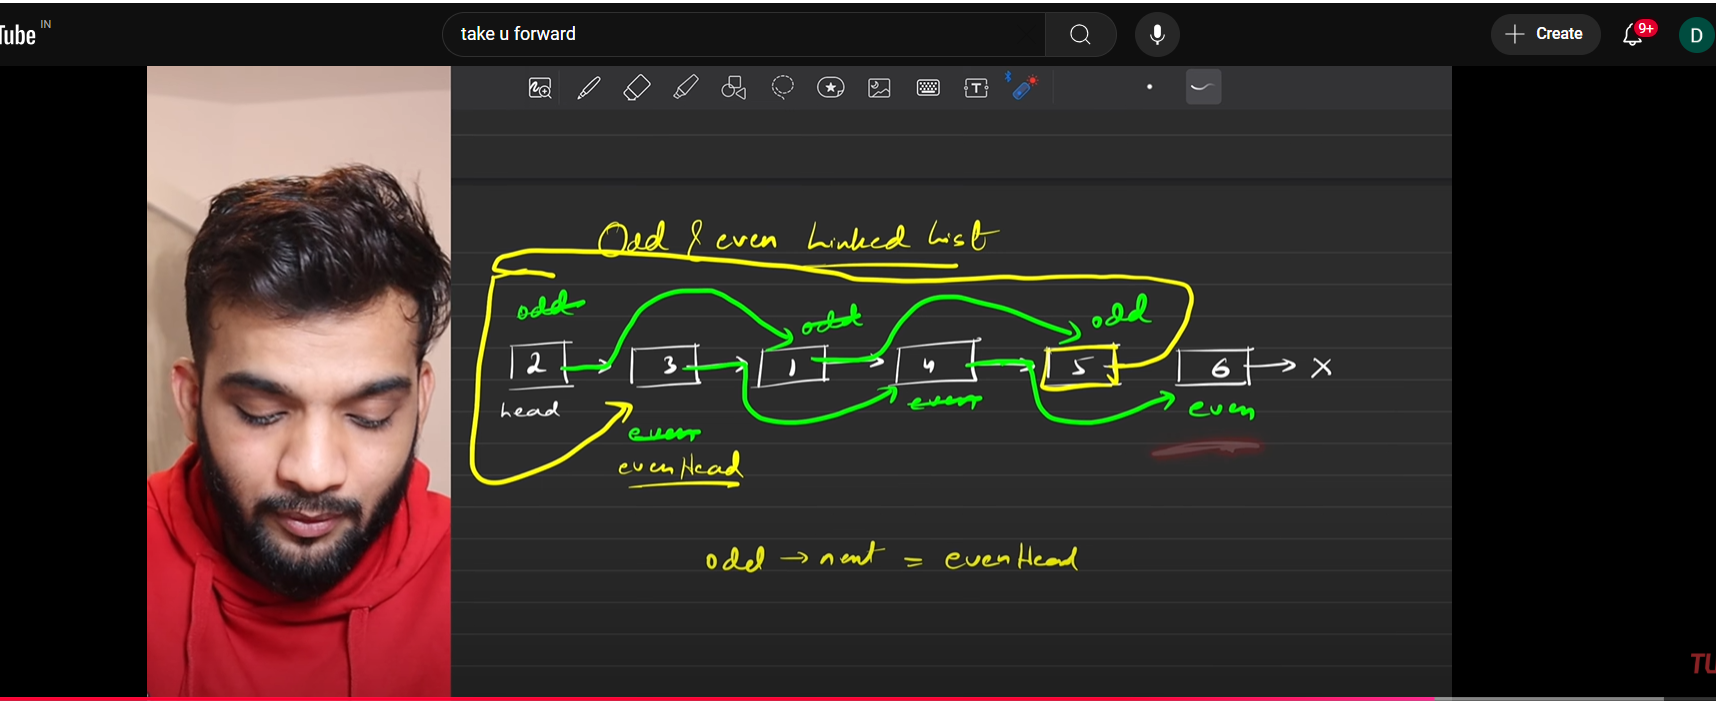 Tube IN
take u forward
Create
9+
D
T
Odd & even Linked List
odd odd odd
2 3 1 4 5 6 X
head
even even even
evenHead
odd → next = evenHead
TU